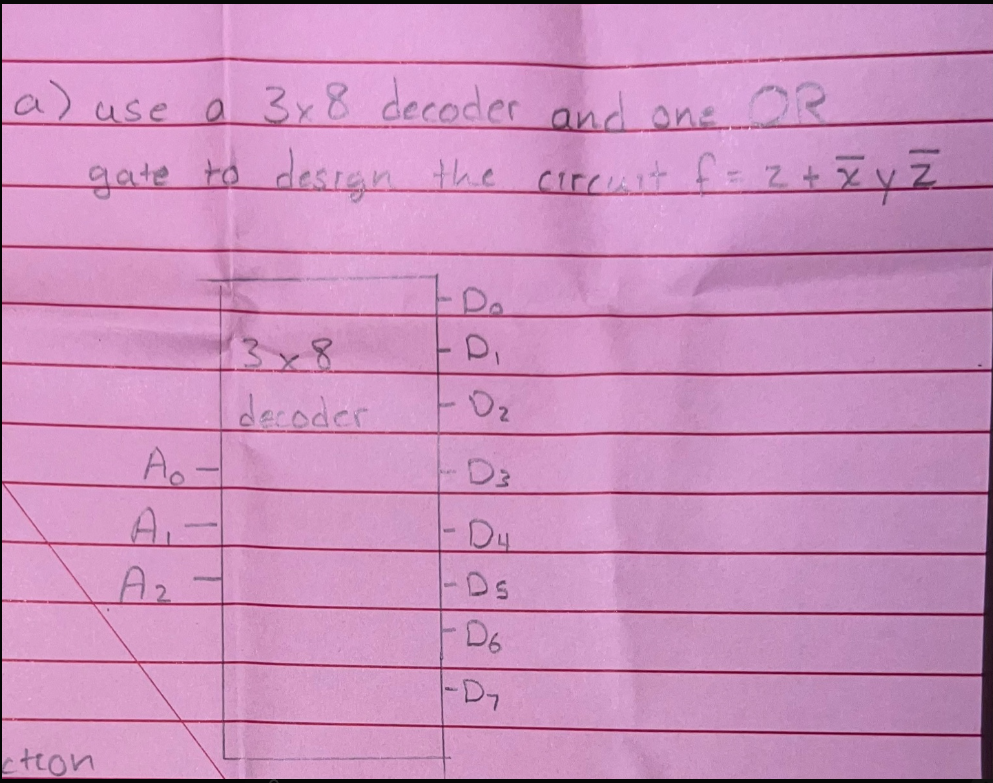 a) use a 3x8 decoder and one OR
gate to design the circuit f = z + x̅ y z̅
D₀
3 x 8
D₁
decoder
D₂
A₀
D₃
A₁
D₄
A₂
D₅
D₆
D₇
ction